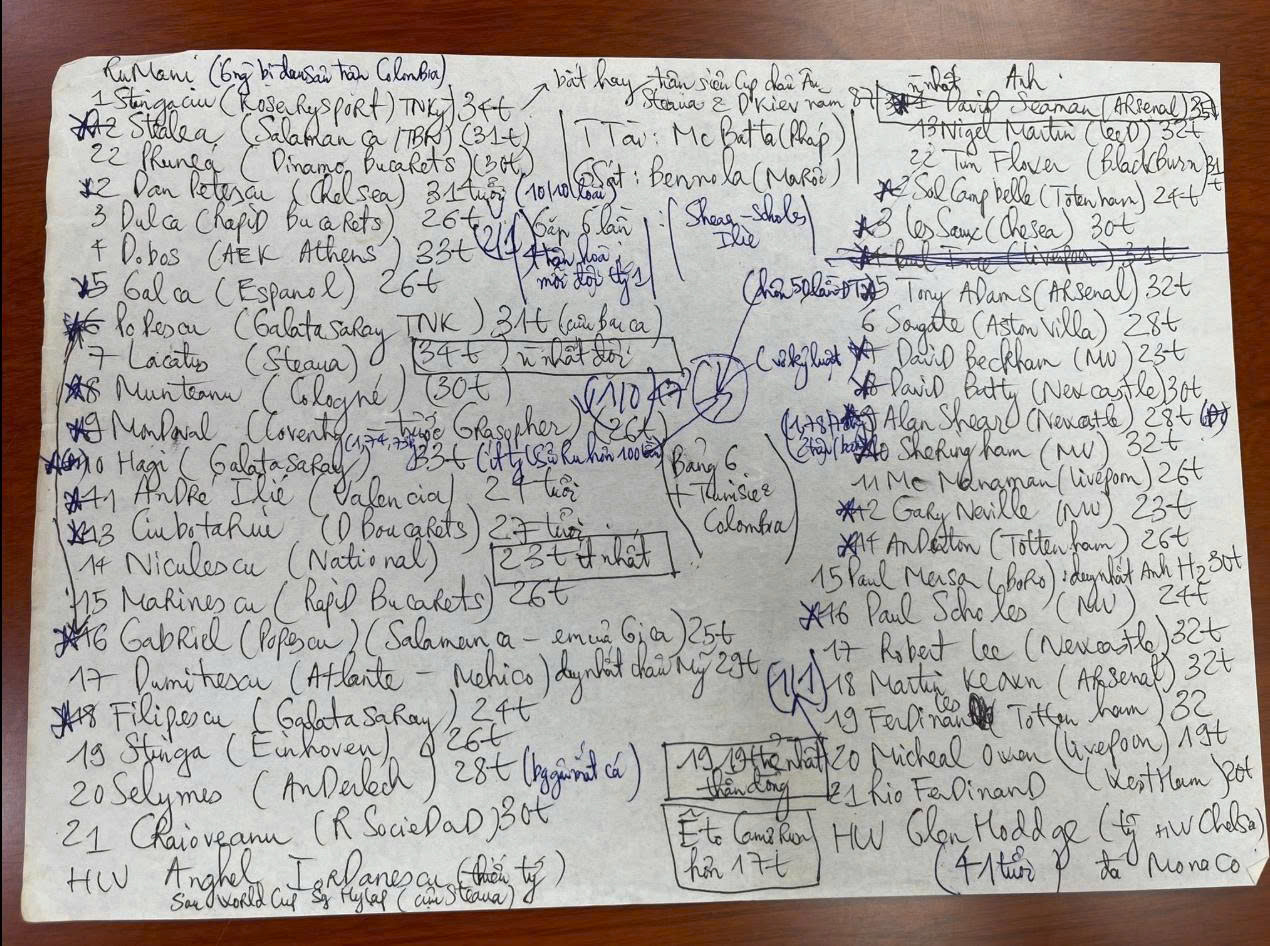 RuMani (6ng bị đau sau trận Colombia)
1 Stingaciu (RoseRySpoRt) TNKỳ 34t
bắt hay trận siêu Cup châu Âu
Steaua & DKiev nam 87
12 Stealea (Salamanca /TBN) (31t)
22 PRunea (Dinamo BucaRets) (30t)
TTài: Mc Batta (Pháp)
GSát: Bennola (MaRốc)
2 Dan Petescu (Chelsea) 31 tuổi
3 Dulca (RapiD BucaRets) 26t
4 Dobos (AEK Athens) 33t
(2/1)
Gặp 6 lần
4 trận hoà
mỗi đội tỷ 1
Shear - Scholes
Ilie
5 Galca (Espanol) 26t
6 PoPescu (GalataSaRay TNK) 31t (cựu Barca)
7 Lacatus (Steaua) 34t n nhất đội
8 Munteanu (Cologné) (30t)
9 MonDoval (Coventy - trước Grasopher) (26t)
(1,74,73k)
10 Hagi (GalataSaRay) 33t
11 AnDRé Ilié (Valencia) 24 tuổi
13 CiubotaRiu (D BoucaRets) 27 tuổi
14 Niculescu (National) 23t ít nhất
15 MaRinescu (RapiD BucaRets) 26t
16 GabRiel (PoPescu) (Salamanca - em của Gica) 25t
17 Dumitrescu (Atlante - Mehico) duy nhất châu Mỹ 29t
18 Filipescu (GalataSaRay) 24t
19 Stinga (Einhoven) 26t
20 Selymes (AnDerlech) 28t
21 CRaioveanu (R SocieDaD) 30t
HLV Anghel IoRDanescu (thiếu tá)
Sau World Cup Sg Hylap (cựu Steaua)
(hơn 50 lần ĐT)
(vô kỷ luật)
Bảng G
+ Tunisie &
Colombia
19 19t trẻ nhất
thần đồng
Êto CamơRun
hơn 17t
n nhất Anh
1 DaviD Seaman (ARsenal) 35t
13 Nigel Martin (LeeD) 32t
22 Tim Flower (BlackBurn) 31t
2 Sol Campbelle (Totenham) 24t
3 Les Saux (Chesea) 30t
4 Paul Ince (Livepoon) 31t
5 Tony ADamS (ARsenal) 32t
6 Sougate (Aston Villa) 28t
7 DaviD Beckham (MU) 23t
8 DaviD Batty (Nexcastle) 30t
9 Alan Shear (Nexcastle) 28t
10 SheRingham (MU) 32t
11 Mc Manaman (Livepoon) 26t
12 Gary Neville (MU) 23t
14 AnDerton (Tottenham) 26t
15 Paul MeRsan (BoRo): duy nhất Anh H2 30t
16 Paul Scholes (MU) 24t
17 Robert Lee (Nexcastle) 32t
(1/1)
18 Martin Keown (ARsenal) 32t
19 FerDinan les Tottenham 32
20 Micheal Owen (Livepoon) 19t
21 Rio FerDinanD (WestHam) 20t
HLV Glen Hoddge (từng HLV Chelsa)
(41 tuổi) đá Monaco